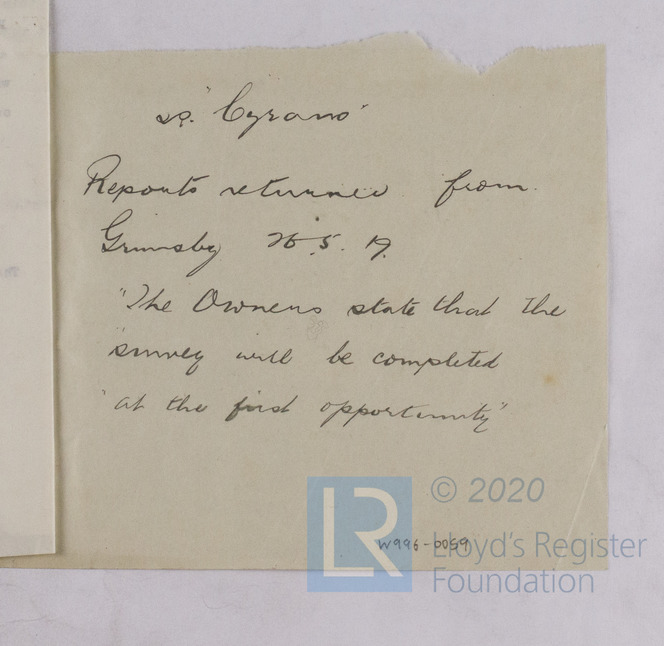 ss. "Cyrano"
Reports returned from
Grimsby 26.5.19.
"The Owners state that the
"survey will be completed
"at the first opportunity"
LR
© 2020
Lloyd's Register
Foundation
W996-0059